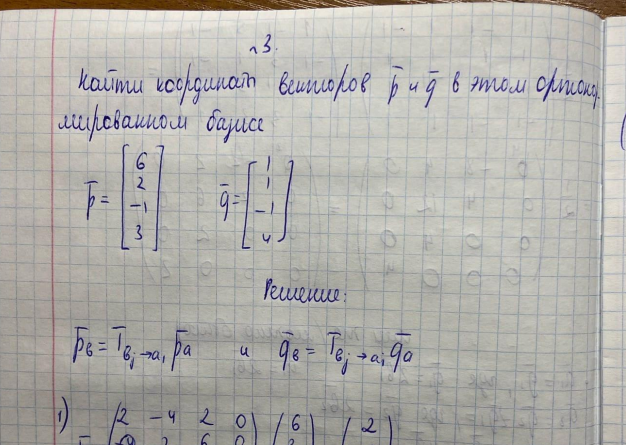 №3.
Найти координаты векторов p̄ и q̄ в этом ортонор-
мированном базисе
p̄ = [6 2 -1 3] q̄ = [1 1 -1 4]
Решение:
p̄в = Tвj→ai p̄a и q̄в = Tвj→ai q̄a
1) (2 -4 2 0) (6 (2